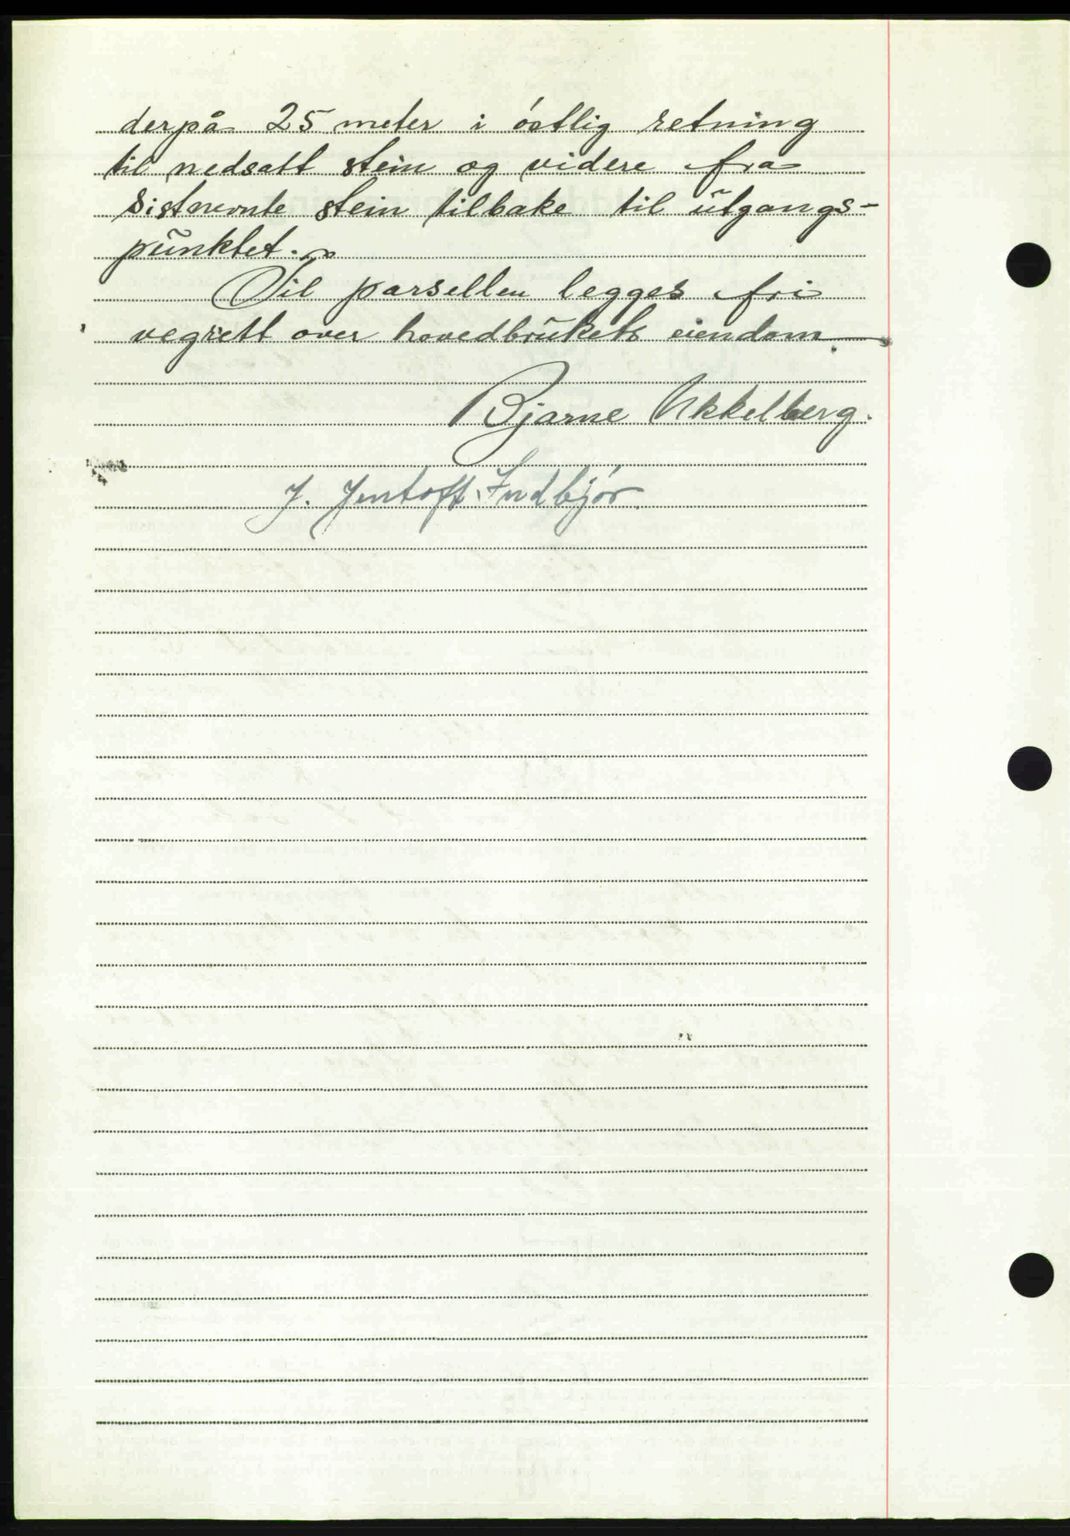 derpå 25 meter i östlig retning
til nedsatt stein og videre fra
sistnevnte stein tilbake til utgangs-
punktet.
Til parsellen legges fri
vegrett over hovedbrukets eiendom.
Bjarne Ukkelberg.
J. Jentoft Indbjör.